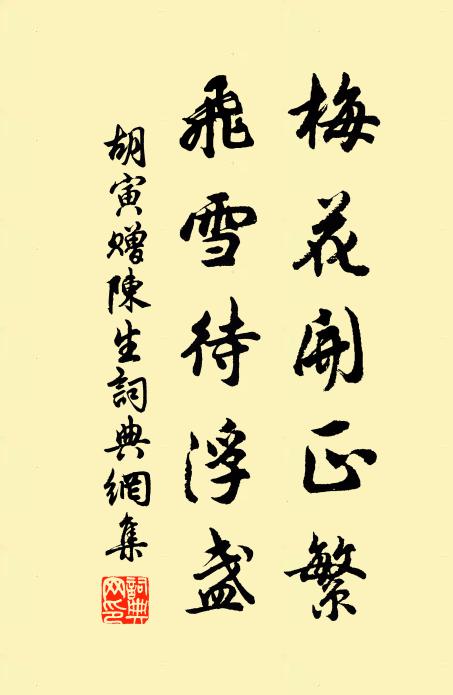 梅花開正繁
飛雪待浮盞
胡寅贈陳生詞典網集
詞典網印